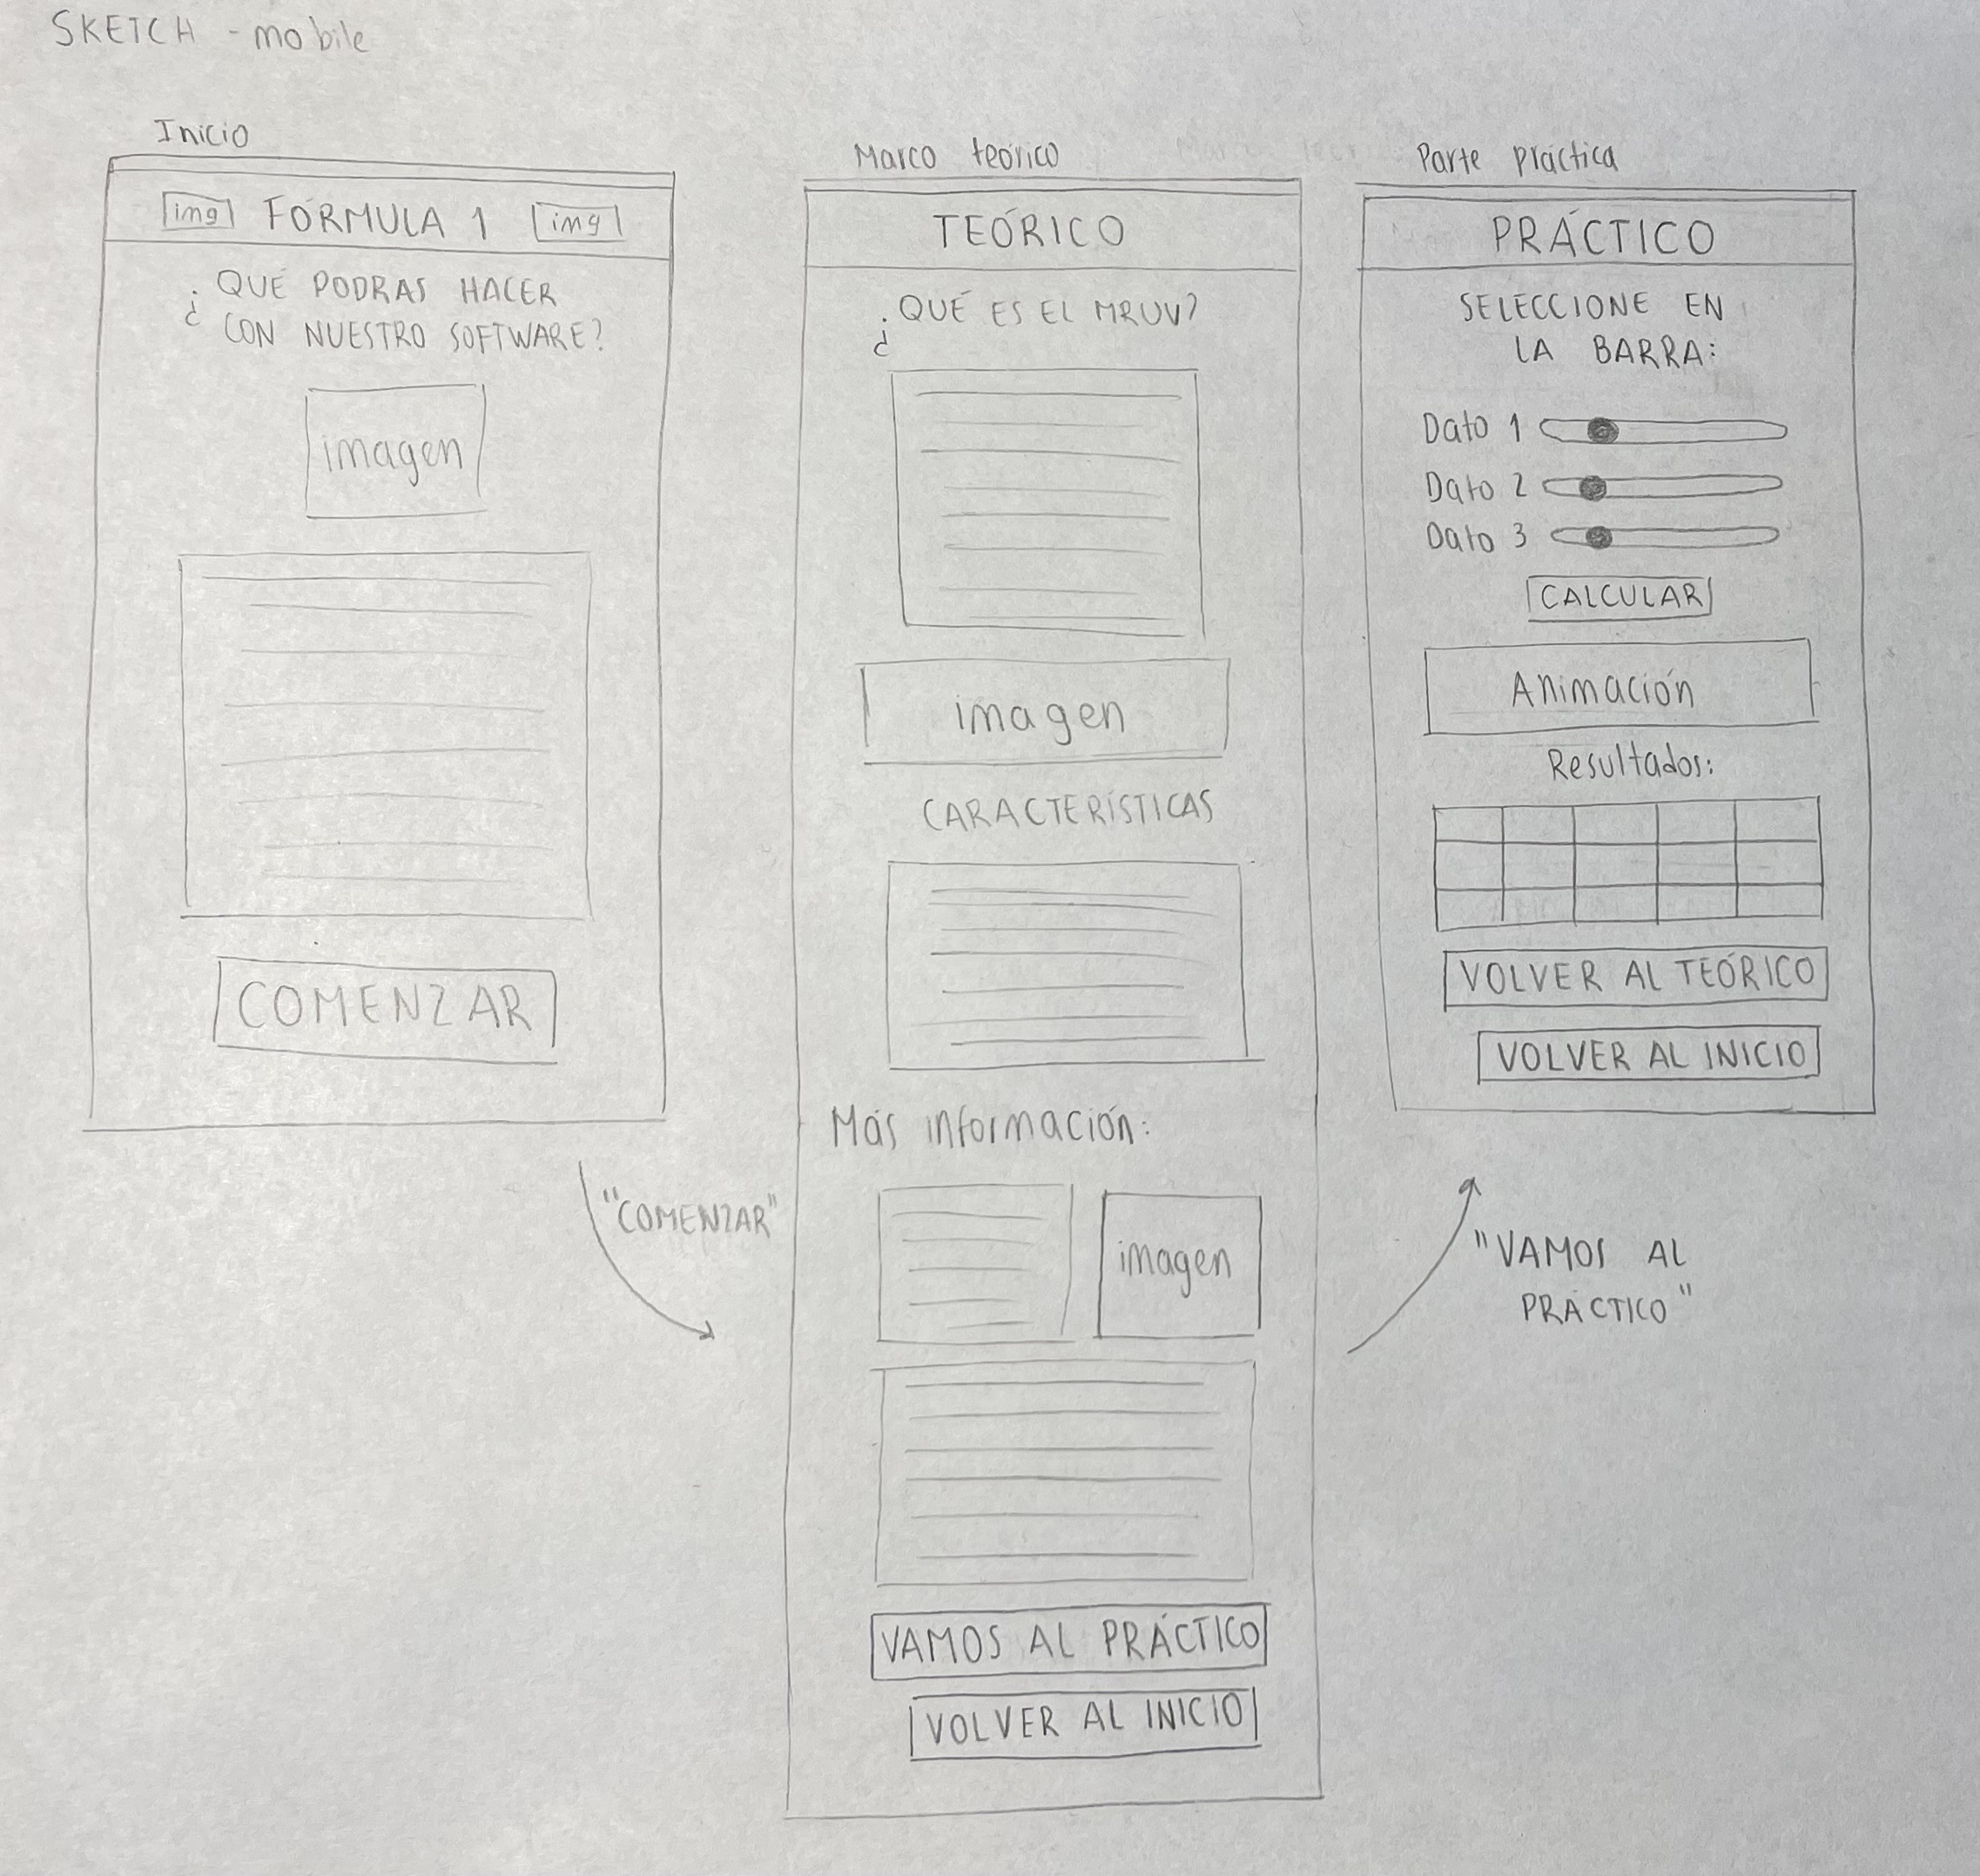 SKETCH - mobile
Inicio
img FÓRMULA 1 img
¿QUÉ PODRAS HACER
CON NUESTRO SOFTWARE?
imagen
COMENZAR
"COMENZAR"
Marco teórico
TEÓRICO
¿QUÉ ES EL MRUV?
imagen
CARACTERÍSTICAS
Más información:
imagen
VAMOS AL PRÁCTICO
VOLVER AL INICIO
"VAMOS AL
PRÁCTICO"
Parte práctica
PRÁCTICO
SELECCIONE EN
LA BARRA:
Dato 1
Dato 2
Dato 3
CALCULAR
Animación
Resultados:
VOLVER AL TEÓRICO
VOLVER AL INICIO